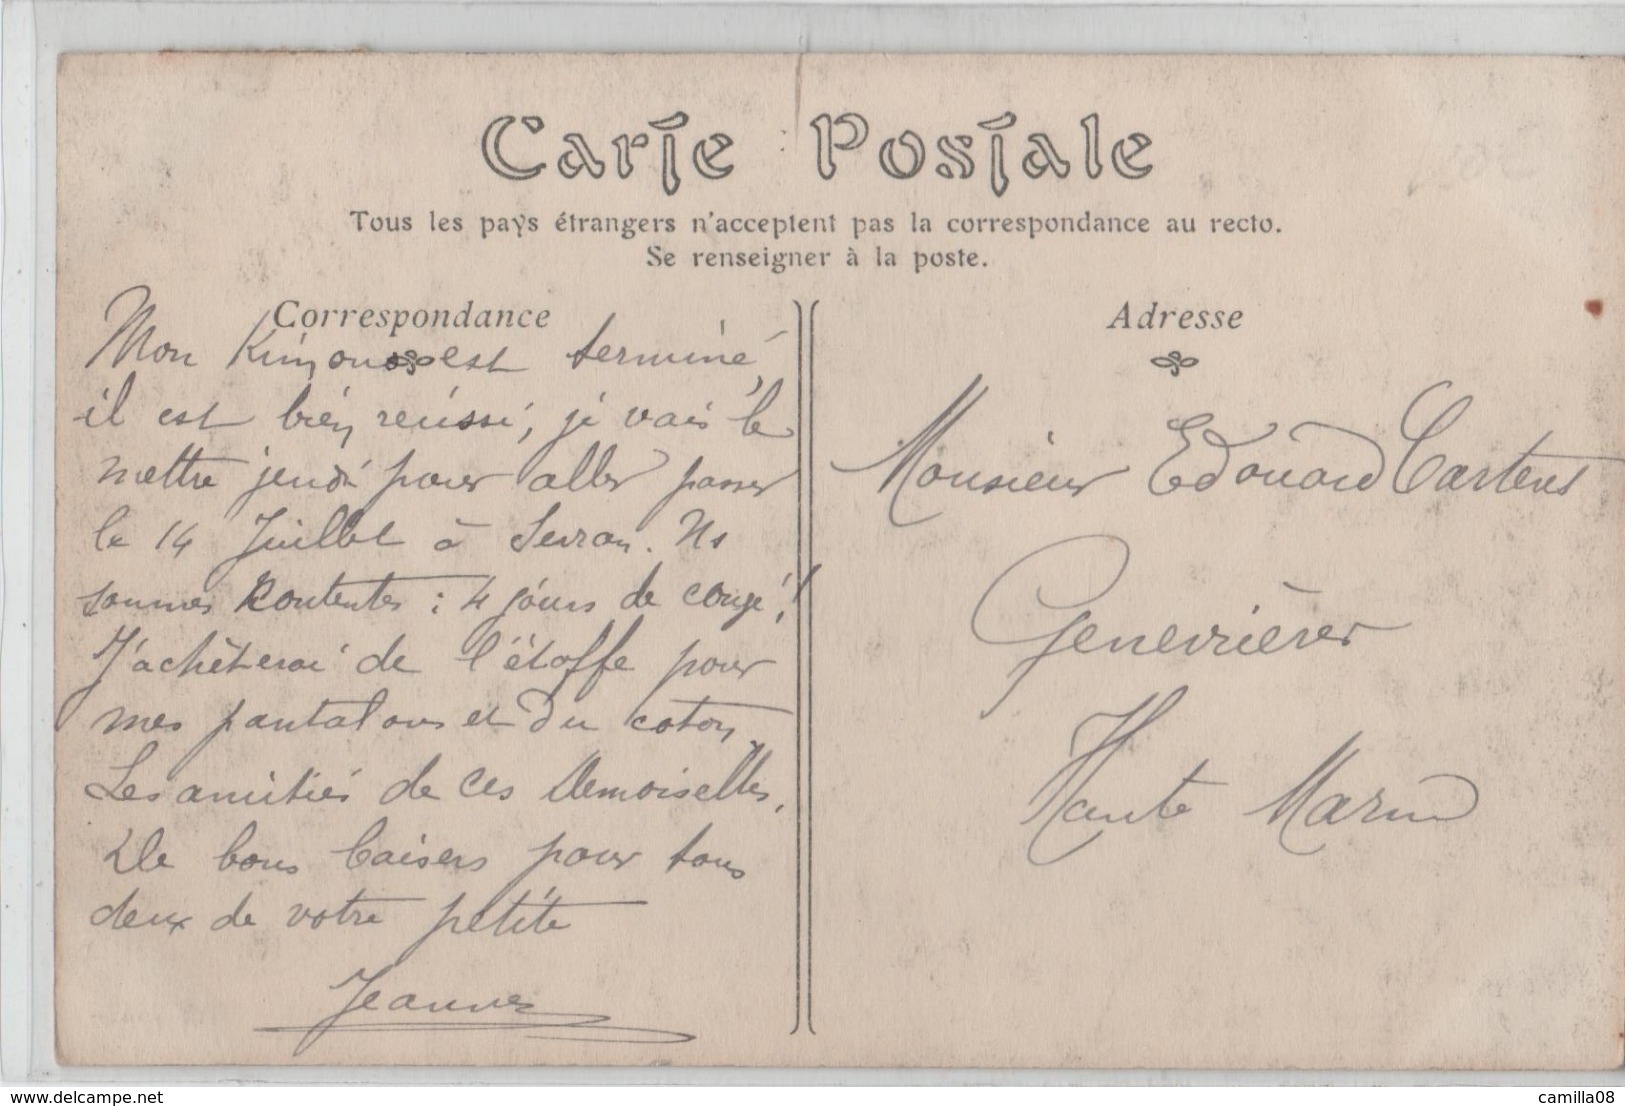 Carte Postale
Tous les pays étrangers n'acceptent pas la correspondance au recto.
Se renseigner à la poste.
Correspondance
Mon Kimono est terminé,
il est bien réussi, je vais le
mettre jeudi pour aller passer
le 14 Juillet à Sevran. Ns
sommes Kontentes : 4 jours de congé !
J'achèterai de l'étoffe pour
mes pantalons et du coton.
Les amitiés de ces Demoiselles.
De bons baisers pour tous
deux de votre petite
Jeanne
Adresse
Monsieur Edouard Cartens
Genevrières
Haute Marne
delcampe.net
camilla08